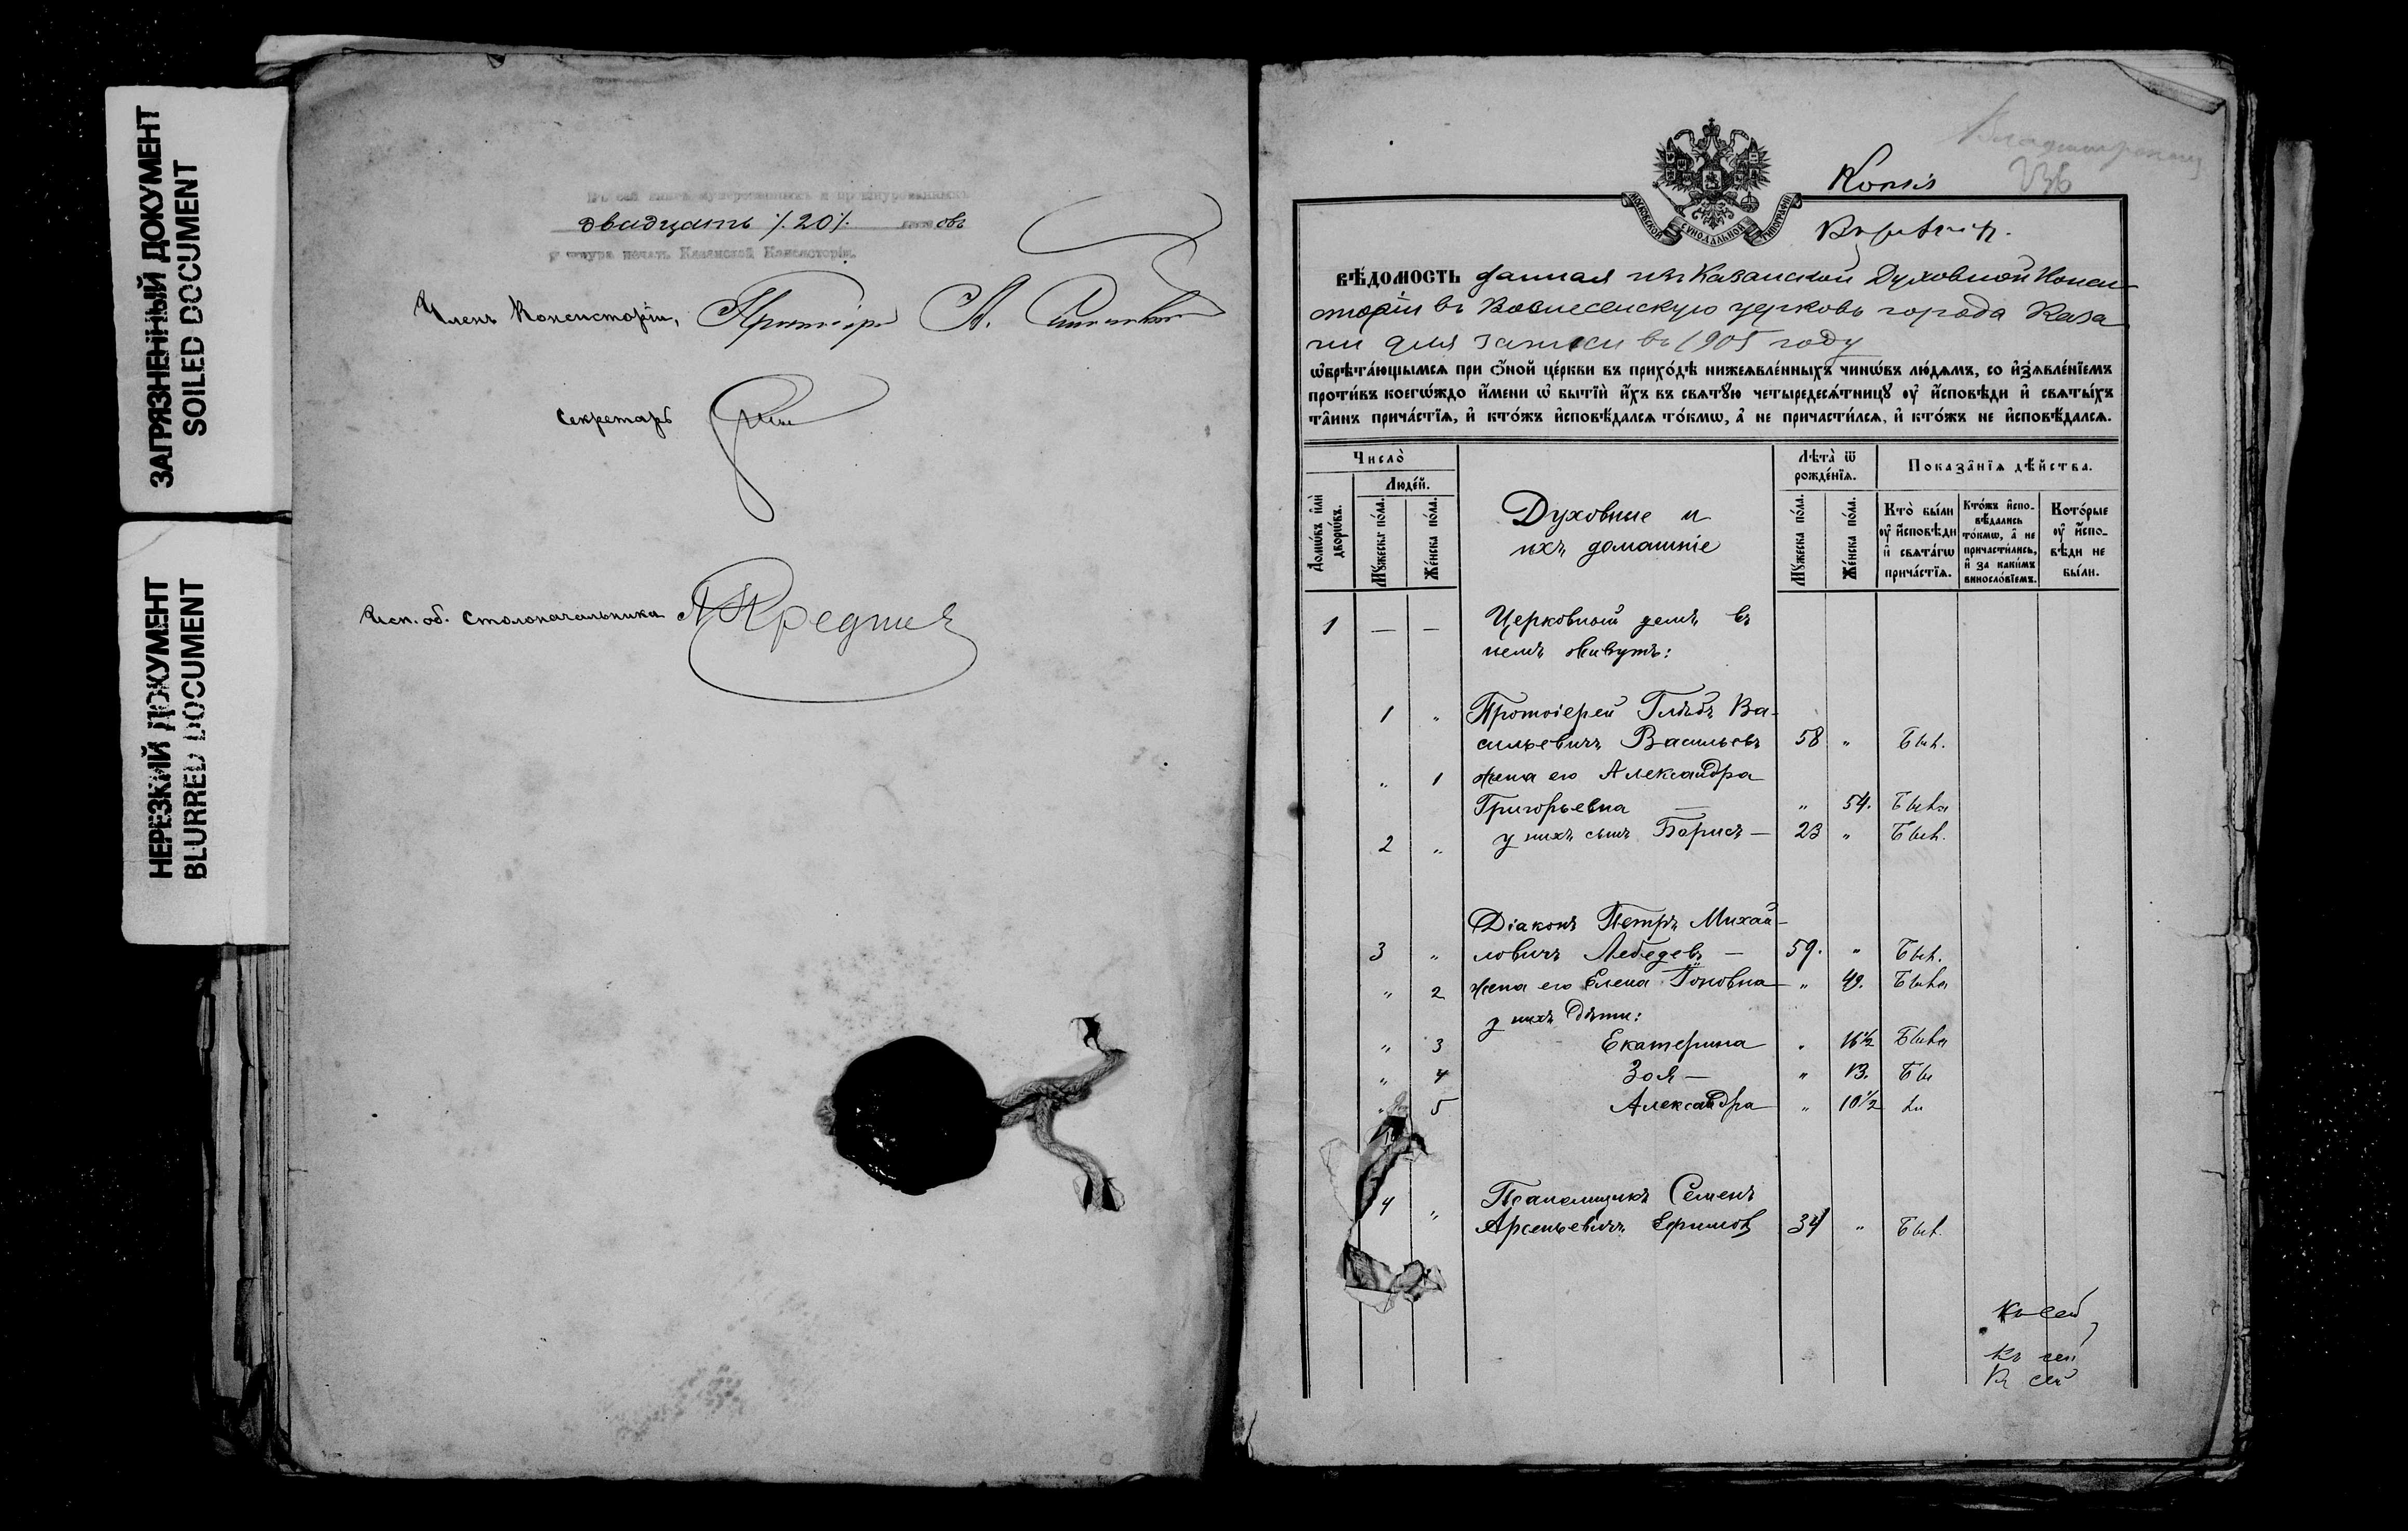 ЗАГРЯЗНЕННЫЙ ДОКУМЕНТ
SOILED DOCUMENT
НЕРЕЗКИЙ ДОКУМЕНТ
BLURRED DOCUMENT
двадцать /.20/. овъ
шнура печать Казанской Консисторіи.
Членъ Консисторіи, А.
Секретарь
Исп. об. Столоначальника
236
Копія
МОСКОВСКОЙ СѴНОДАЛЬНОЙ ТИПОГРАФІИ
ВѢДОМОСТЬ данная изъ Казанской Духовной Конси-
сторіи въ Вознесенскую церковь города Каза
ни для записи въ 1905 году
ѡ҆брѣта́ющымсѧ при ѻ҆́ной це́ркви въ прихо́дѣ нижеѧвле́нныхъ чинѡ́въ лю́дѧмъ, со и҆з̾ѧвле́нїемъ
проти́въ коегѡ́ждо и҆́мени ѡ҆ бытїѝ и҆́хъ въ свѧтꙋ́ю четыредесѧ́тницꙋ ᲂу҆ и҆́сповѣди и҆ свѧты́хъ
та̑инъ прича́стїѧ, и҆ кто́жъ и҆сповѣ́дался то́кмѡ, а҆ не причасти́лсѧ, и҆ кто́жъ не и҆сповѣ́дался.
Число̀
Люде́й.
Домѡ́въ и҆лѝ дворѡ́въ.
Мꙋ́жеска по́ла.
Же́нска по́ла.
Духовные и
ихъ домашніе
Лѣ́та ѿ рожде́нїѧ.
Мꙋ́жеска по́ла.
Же́нска по́ла.
Показа̑нїѧ дѣ́йства.
Кто̀ бы́ли ᲂу҆ и҆́сповѣди и҆ свѧта́гѡ прича́стїѧ.
Кто́жъ и҆спо-вѣ́дались то́кмѡ, а҆ не причасти́лись, и҆ за каки́мъ винослόвїемъ.
Кото́рые ᲂу҆ и҆́спо-вѣди не бы́ли.
1 — — Церковный домъ въ
немъ живутъ:
1 „ Протоіерей Глѣбъ Ва-
сильевичъ Васильевъ 58 „ Былъ.
„ 1 жена его Александра
Григорьевна — „ 54. Была
2 „ у нихъ сынъ Борисъ — 23 „ Былъ.
Діаконъ Петръ Михай-
3 „ ловичъ Лебедевъ — 59. „ Былъ.
„ 2 жена его Елена Іоновна „ 49. Была
у нихъ дѣти:
„ 3 Екатерина „ 16½ Была
„ 4 Зоя — „ 13. Бы
„ 5 Александра „ 10½ ли
4 „ Псаломщикъ Семенъ
Арсеньевичъ Ефимовъ 34 „ Былъ.
Къ сей
Къ сей
Къ сей